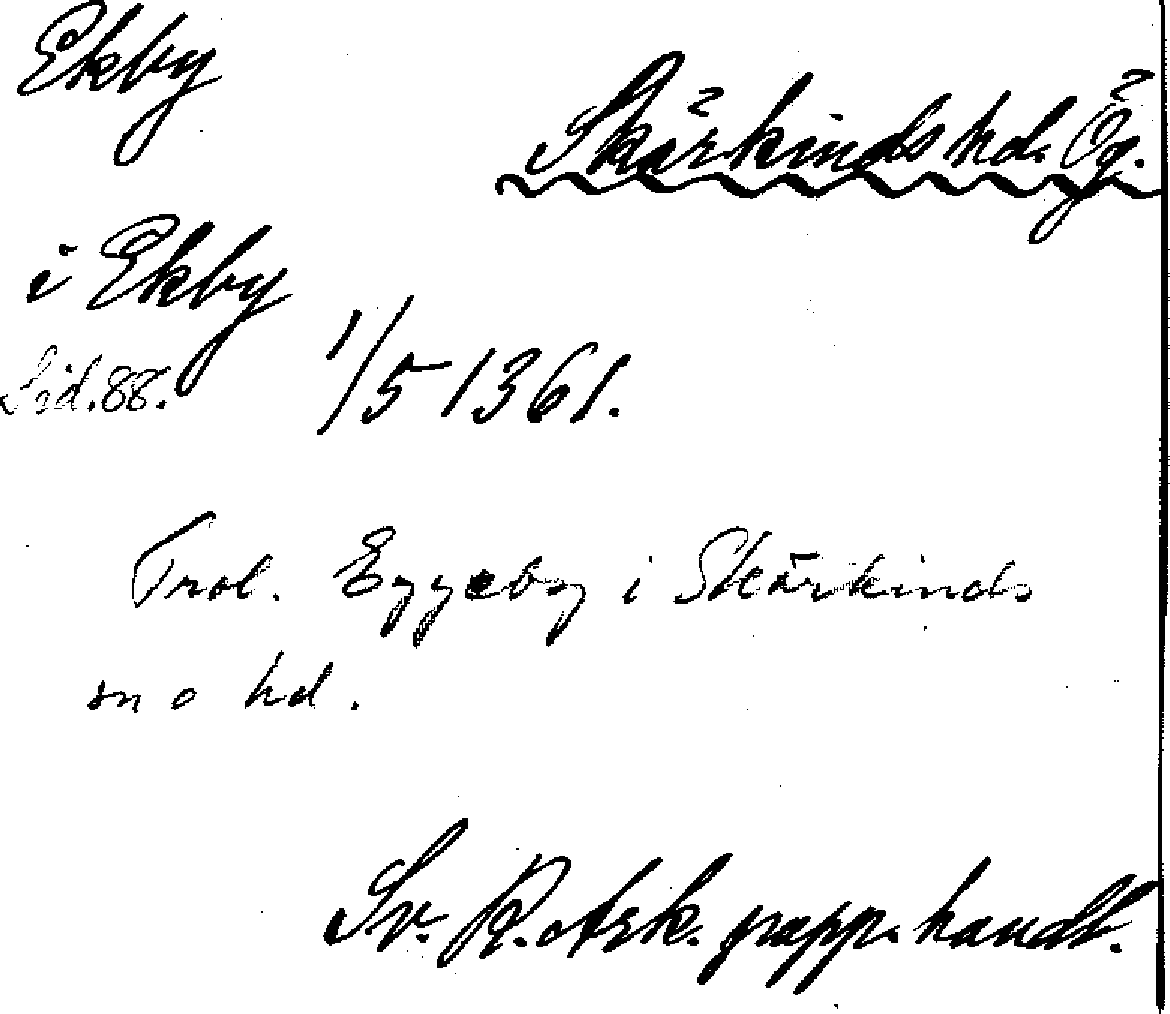 Ekby
Skärkinds hd. Ög.
i Ekby
Sid. 88.
1/5 1361.
Trol. Eggeby i Skärkinds
sn o hd.
Sv. R. Ark. papp. handl.